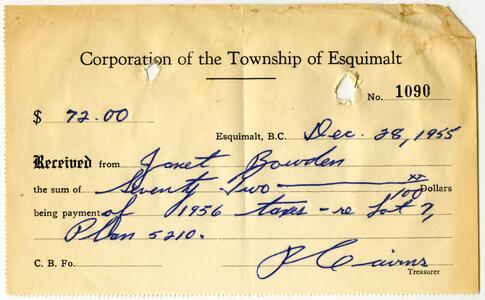 Corporation of the Township of Esquimalt
No. 1090
$ 72.00
Esquimalt, B.C. Dec. 28, 1955
Received from Janet Bowden
the sum of Seventy Two xx/100 Dollars
being payment of 1956 taxes - re Lot 7,
Plan 5210.
C. B. Fo. Cairns
Treasurer